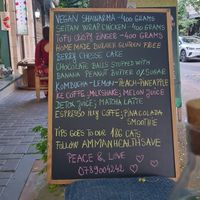 VEGAN SHAWARMA - 400 GRAMS
SEITAN WRAP CHICKEN - 400 GRAMS
TOFU CRISPY ZINGER - 400 GRAMS
HOMEMADE BURGER GLUTEN FREE
BERRY CHEESE CAKE
CHOCOLATE BALLS STUFFED WITH
BANANA PEANUT BUTTER 0% SUGAR
KOMBUCHA - LEMON - PEACH - PINEAPPLE
ICE COFFE, MILKSHAKE, MELON JUICE
DETOX JUICE, MATCHA LATTE
ESPRESSO PINACOLADA
SMOOTHIE
TIPS GOES TO OUR CATS
FOLLOW AMMANHEALTHSAVE
PEACE & LOVE
0789004242